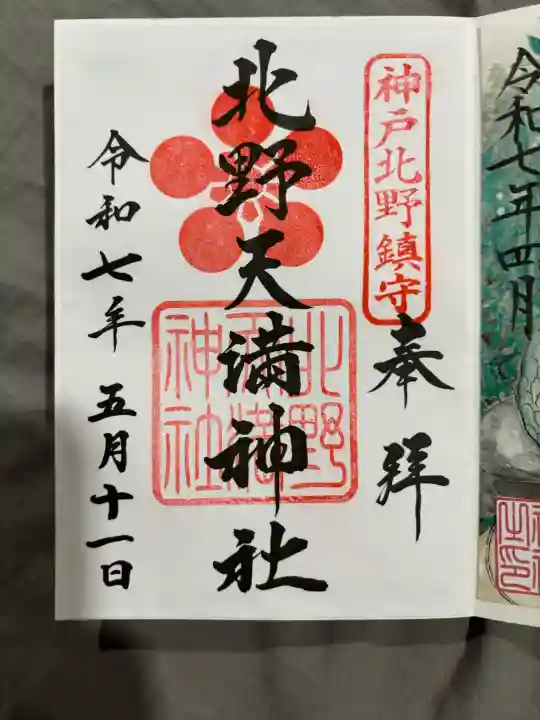 令和七年四月
神戸北野鎮守
奉拜
北野天満神社
北野天満神社
令和七年 五月十一日